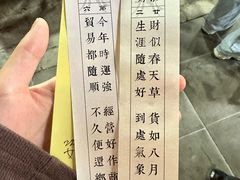 財似春天草 貨如八月
生涯隨處好 到處氣象
今年時運強 經營好作商
貿易都隨順 不久便還鄉